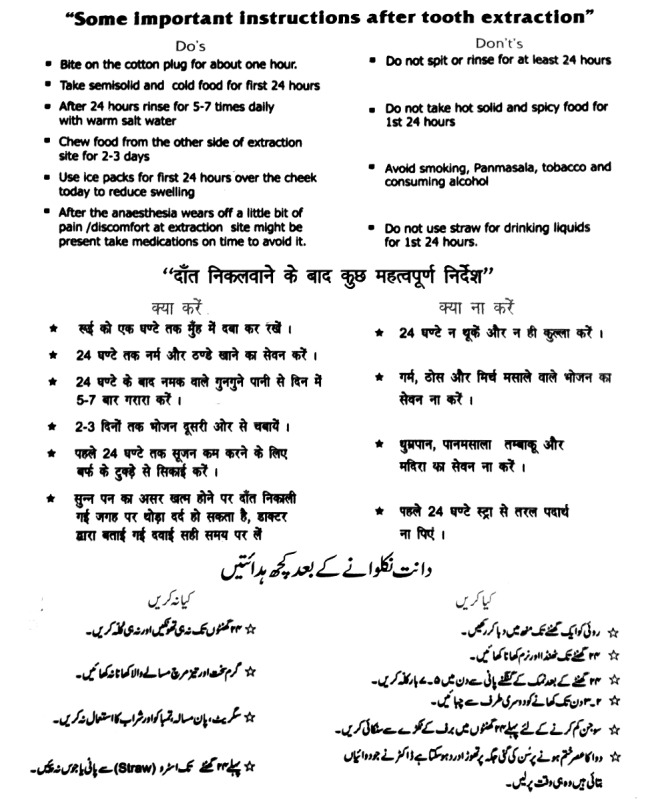 “Some important instructions after tooth extraction”
Do's
▪ Bite on the cotton plug for about one hour.
▪ Take semisolid and cold food for first 24 hours
▪ After 24 hours rinse for 5-7 times daily
with warm salt water
▪ Chew food from the other side of extraction
site for 2-3 days
▪ Use ice packs for first 24 hours over the cheek
today to reduce swelling
▪ After the anaesthesia wears off a little bit of
pain /discomfort at extraction site might be
present take medications on time to avoid it.
Don't's
▪ Do not spit or rinse for at least 24 hours
▪ Do not take hot solid and spicy food for
1st 24 hours
▪ Avoid smoking, Panmasala, tobacco and
consuming alcohol
▪ Do not use straw for drinking liquids
for 1st 24 hours.
“दाँत निकलवाने के बाद कुछ महत्वपूर्ण निर्देश”
क्या करें
★ रूई को एक घण्टे तक मुँह में दबा कर रखें ।
★ 24 घण्टे तक नर्म और ठण्डे खाने का सेवन करें ।
★ 24 घण्टे के बाद नमक वाले गुनगुने पानी से दिन में
5-7 बार गरारा करें ।
★ 2-3 दिनों तक भोजन दूसरी ओर से चबायें ।
★ पहले 24 घण्टे तक सूजन कम करने के लिए
बर्फ के टुकड़े से सिकाई करें ।
★ सुन्न पन का असर खत्म होने पर दाँत निकाली
गई जगह पर थोड़ा दर्द हो सकता है, डाक्टर
द्वारा बताई गई दवाई सही समय पर लें
क्या ना करें
★ 24 घण्टे न थूकें और न ही कुल्ला करें ।
★ गर्म, ठोस और मिर्च मसाले वाले भोजन का
सेवन ना करें ।
★ धुम्रपान, पानमसाला तम्बाकू और
मदिरा का सेवन ना करें ।
★ पहले 24 घण्टे स्ट्रा से तरल पदार्थ
ना पिएं ।
دانت نکلوانے کے بعد کچھ ہدائتیں
کیا کریں
☆ روئی کو ایک گھنٹے تک منھ میں دبا کر رکھیں۔
☆ ۲۴ گھنٹے تک ٹھنڈا اور نرم کھانا کھائیں۔
☆ ۲۴ گھنٹے کے بعد نمک کے گنگنے پانی سے دن میں ۵۔۷ بار کلہ کریں۔
☆ ۲۔۳ دن تک کھانے کو دوسری طرف سے چبائیں۔
☆ سوجن کم کرنے کے لئے پہلے ۲۴ گھنٹوں میں برف کے ٹکڑے سے سنکائی کریں۔
☆ دوا کا عصر ختم ہونے پر سُن کی گئی جگہ پر تھوڑا درد ہو سکتا ہے ڈاکٹر نے جو دوائیاں
بتائی ہیں وہ ہی وقت پر لیں۔
کیا نہ کریں
☆ ۲۴ گھنٹوں تک نہ ہی تھوکیں اور نہ ہی کلہ کریں۔
☆ گرم سخت اور تیز مرچ مسالے والا کھانا نہ کھائیں۔
☆ سگریٹ، پان مسالہ تمباکو اور شراب کا استعمال نہ کریں۔
☆ پہلے ۲۴ گھنٹے تک اسٹرہ (Straw) سے پانی یا جوس نہ